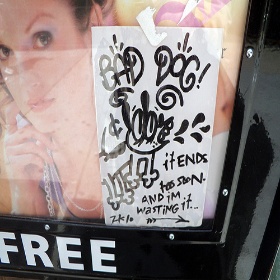 BAD DOG!
it ENDS
too SOON.
AND iM
WASTING iT...
2K10
FREE